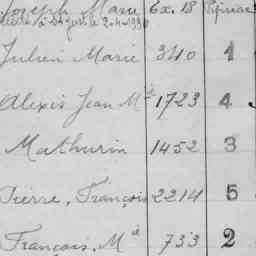 Joseph Marie Ex. 18
Julien Marie 340 1
Alexis Jean Mie 1723 4
Mathurin 1452 3
Pierre, François 2214 5
François, Mie 733 2